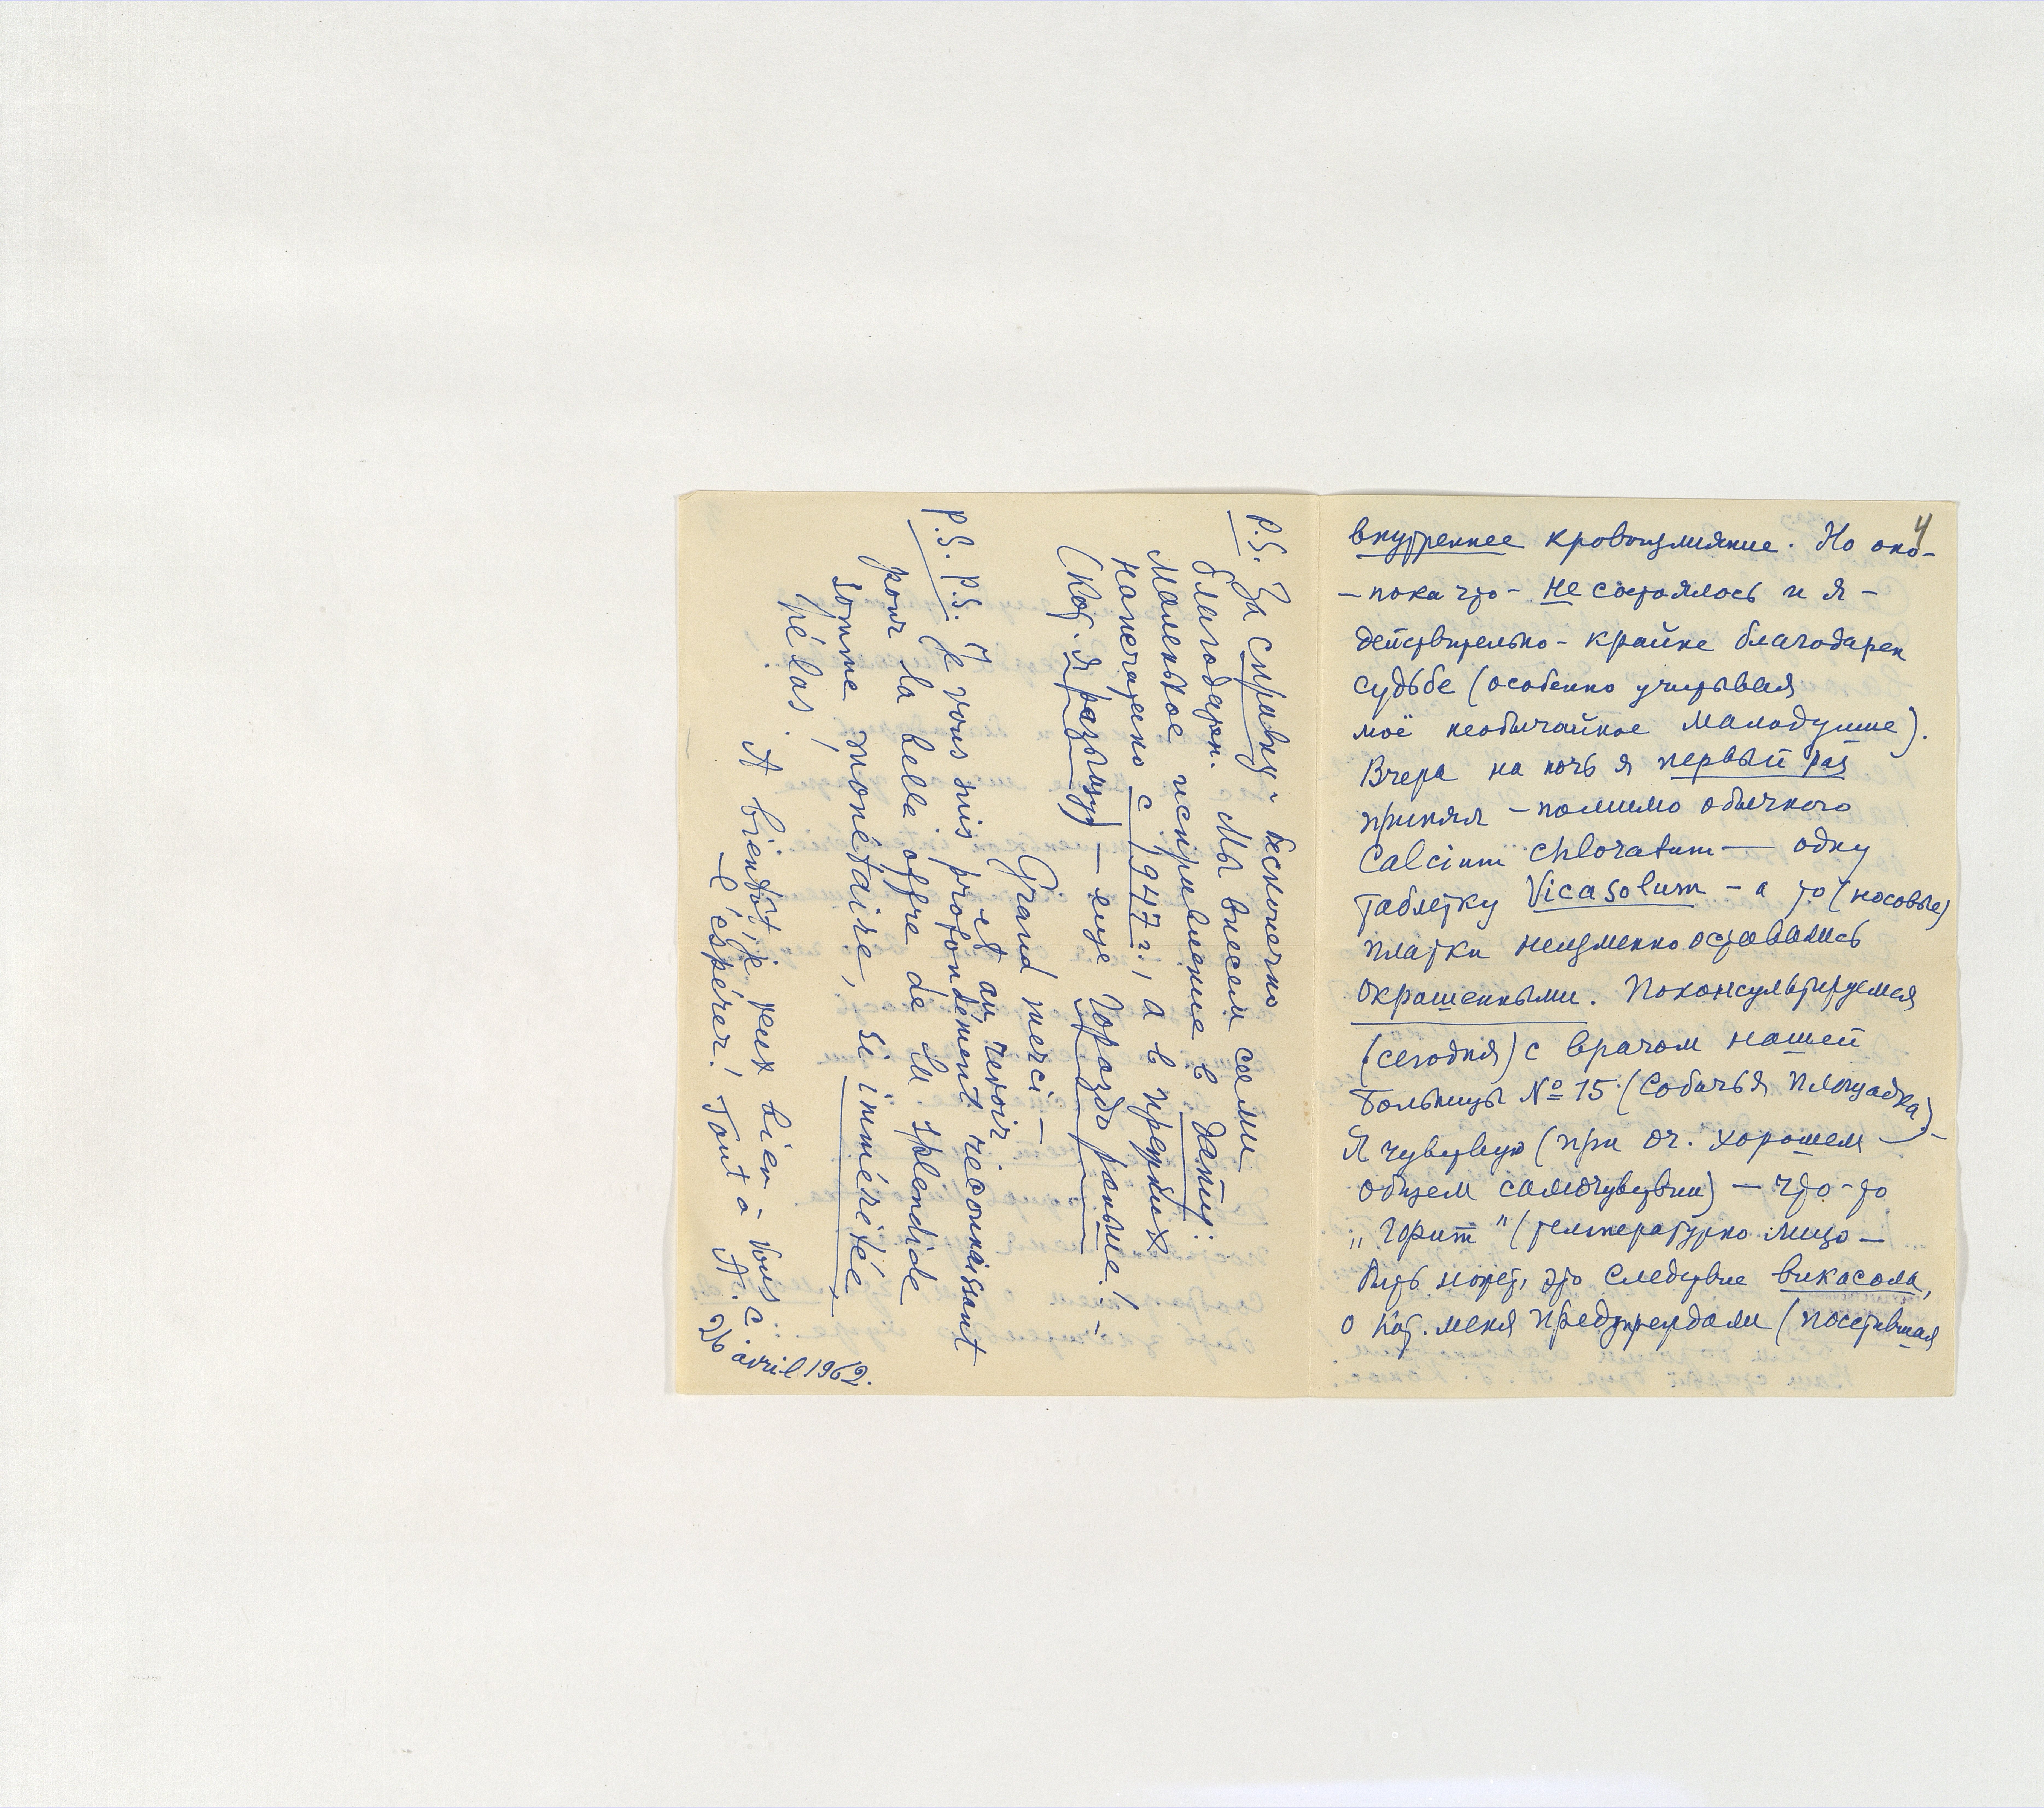 4
внутреннее кровоизлияние. Но оно-
- пока что - не состоялось и я -
действительно - крайне благодарен
судьбе (особенно учитывая
моё необычайное малодушие).
Вчера на ночь я первый раз
принял - помимо обычного
Calcium chloratum — одну
таблетку Vicasolum - а то (носовые)
платки неизменно оставались
окрашенными. Поконсультируемся
(сегодня) с врачом нашей
больницы № 15 (Собачья площадка) -
Я чувствую (при оч. хорошем
общем самочувствии) — что-то
„горит" (температурно лицо —
быть может, это следствие викасола,
о кот. меня предупреждали (посетившая
P.S. За справку - бесконечно
благодарен. Мы внесем сами
маленькое исправление в даты:
напечатано с 1947 г., а в прежних
(кот. я разыщу) — еще гораздо раньше!
Grand merci —
et au revoir
P.S. P.S. Je vous suis profondément reconnaissant
pour la belle offre de la splendide
somme monétaire, si imméritée,
hélas!
A bientôt, je veux bien
l'espérer! Tout à vous A. C.
26 avril 1962.